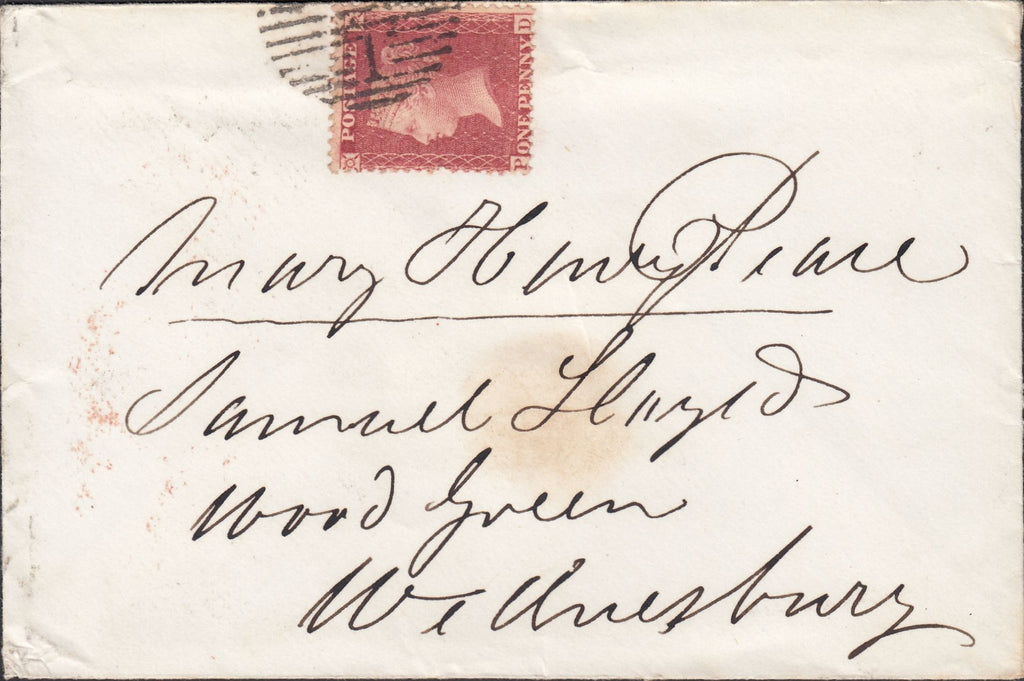 POSTAGE
ONE PENNY
D
P
1
Mary Henry Pease
Samuel Lloyd
Wood Green
Wednesbury